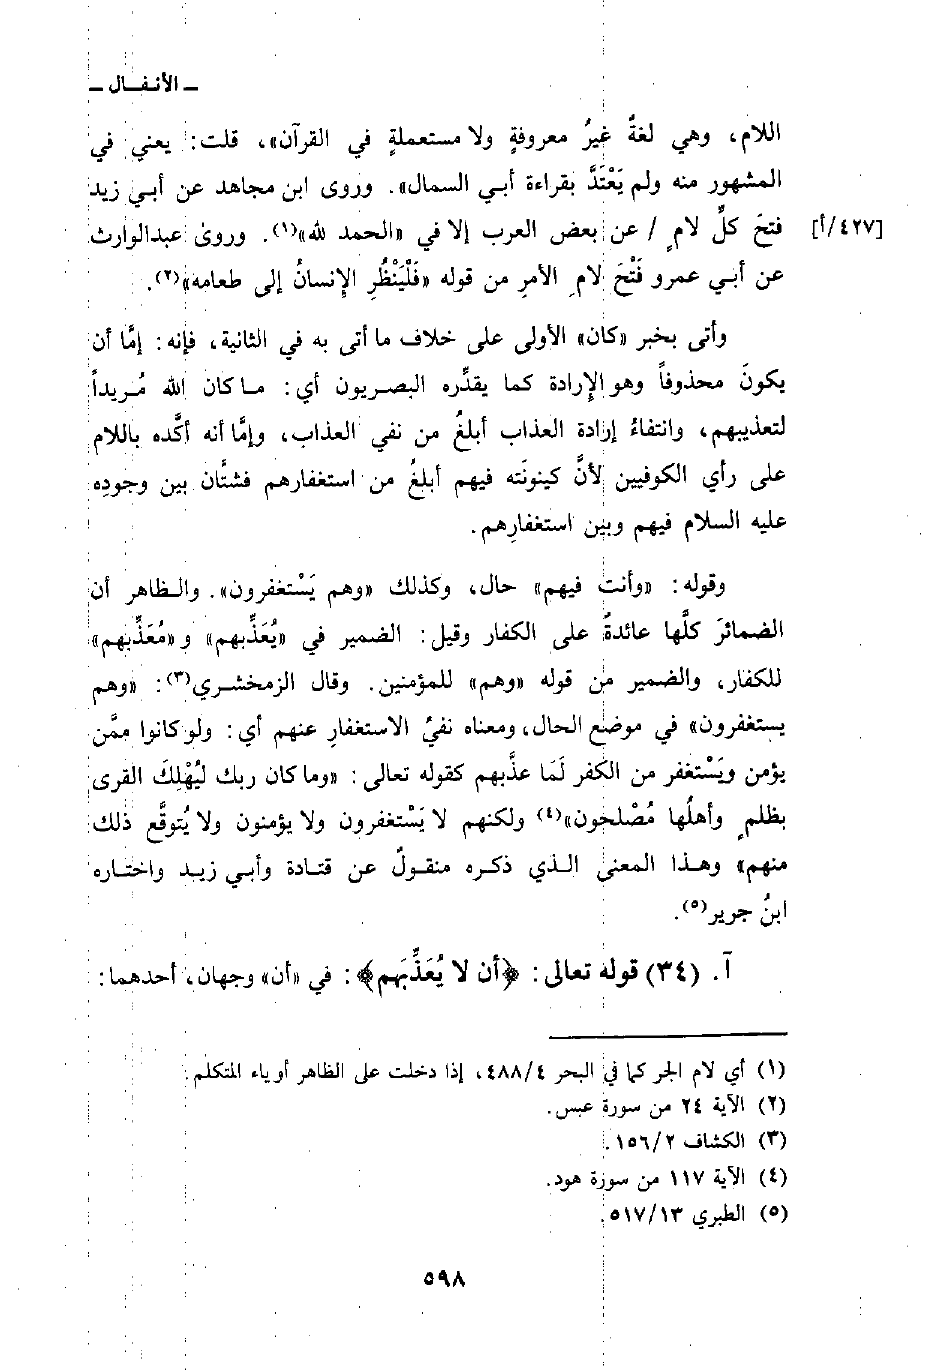 ـ الأنفـال ـ
اللام، وهي لغةٌ غيرُ معروفةٍ ولا مستعملةٍ في القرآن»، قلت: يعني في
المشهور منه ولم يَعْتَدَّ بقراءة أبي السمال». وروى ابن مجاهد عن أبي زيد
[٤٢٧/أ] فتحَ كلِّ لامٍ / عن بعض العرب إلا في «الحمد لله»(١). وروىٰ عبدالوارث
عن أبي عمرو فَتْحَ لامِ الأمرِ من قوله «فَلْيَنْظُرِ الإِنسانُ إلى طعامه»(٢).
وأتى بخبر «كان» الأولى على خلاف ما أتى به في الثانية، فإنه: إمَّا أن
يكونَ محذوفاً وهو الإِرادة كما يقدِّره البصريون أي: ما كان الله مُريداً
لتعذيبهم، وانتفاءُ إرادة العذاب أبلغُ من نفي العذاب، وإمَّا أنه أكَّده باللام
على رأي الكوفيين لأنَّ كينونَته فيهم أبلغُ من استغفارهم فشتَّان بين وجودِه
عليه السلام فيهم وبين استغفارِهم.
وقوله: «وأنت فيهم» حال، وكذلك «وهم يَسْتغفرون». والظاهر أن
الضمائرَ كلَّها عائدةٌ على الكفار وقيل: الضمير في «يُعَذِّبهم» و«مُعَذِّبهم»
للكفار، والضمير من قوله «وهم» للمؤمنين. وقال الزمخشري(٣): «وهم
يستغفرون» في موضع الحال، ومعناه نفيُ الاستغفارِ عنهم أي: ولو كانوا ممَّن
يؤمن ويَسْتغفر من الكفر لَمَا عذَّبهم كقوله تعالى: «وما كان ربك ليُهْلِكَ القرى
بظلمٍ وأهلُها مُصْلحون»(٤) ولكنهم لا يَسْتغفرون ولا يؤمنون ولا يُتوقَّع ذلك
منهم» وهذا المعنى الذي ذكره منقولٌ عن قتادة وأبي زيد واختاره
ابنُ جرير(٥).
آ. (٣٤) قوله تعالى: ﴿أن لا يُعَذِّبَهم﴾: في «أن» وجهان، أحدهما:
(١) أي لام الجر كما في البحر ٤٨٨/٤، إذا دخلت على الظاهر أو ياء المتكلم.
(٢) الآية ٢٤ من سورة عبس.
(٣) الكشاف ١٥٦/٢.
(٤) الآية ١١٧ من سورة هود.
(٥) الطبري ٥١٧/١٣.
٥٩٨